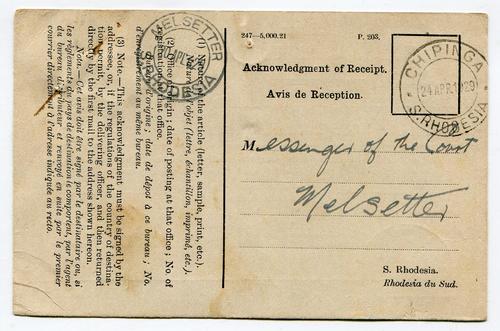 247—5,000.21 P. 203.
Acknowledgment of Receipt.
Avis de Reception.
CHIPINGA
24 APR 1929
S. RHODESIA
Messenger of the Court
Melsetter
S. Rhodesia.
Rhodesia du Sud.
MELSETTER
RHODESIA
(1) the article (letter, sample, print, etc.).
l'objet (lettre, échantillon, imprimé, etc.).
(2) office origin; date of posting at that office; No. of
registration that office.
d'origine; date de dépôt à ce bureau; No.
d'enregistrement au même bureau.
(3) Note.—This acknowledgment must be signed by the
addressee, or, if the regulations of the country of destina-
tion permit, by the delivering officer, and then returned
directly by the first mail to the address shown hereon.
Note.—Cet avis doit être signé par le destinataire ou, si
les règlements du pays de destination le comportent, par l'agent
du bureau distributeur et renvoyé en suite par le premier
courrier directement à l'adresse indiquée au recto.